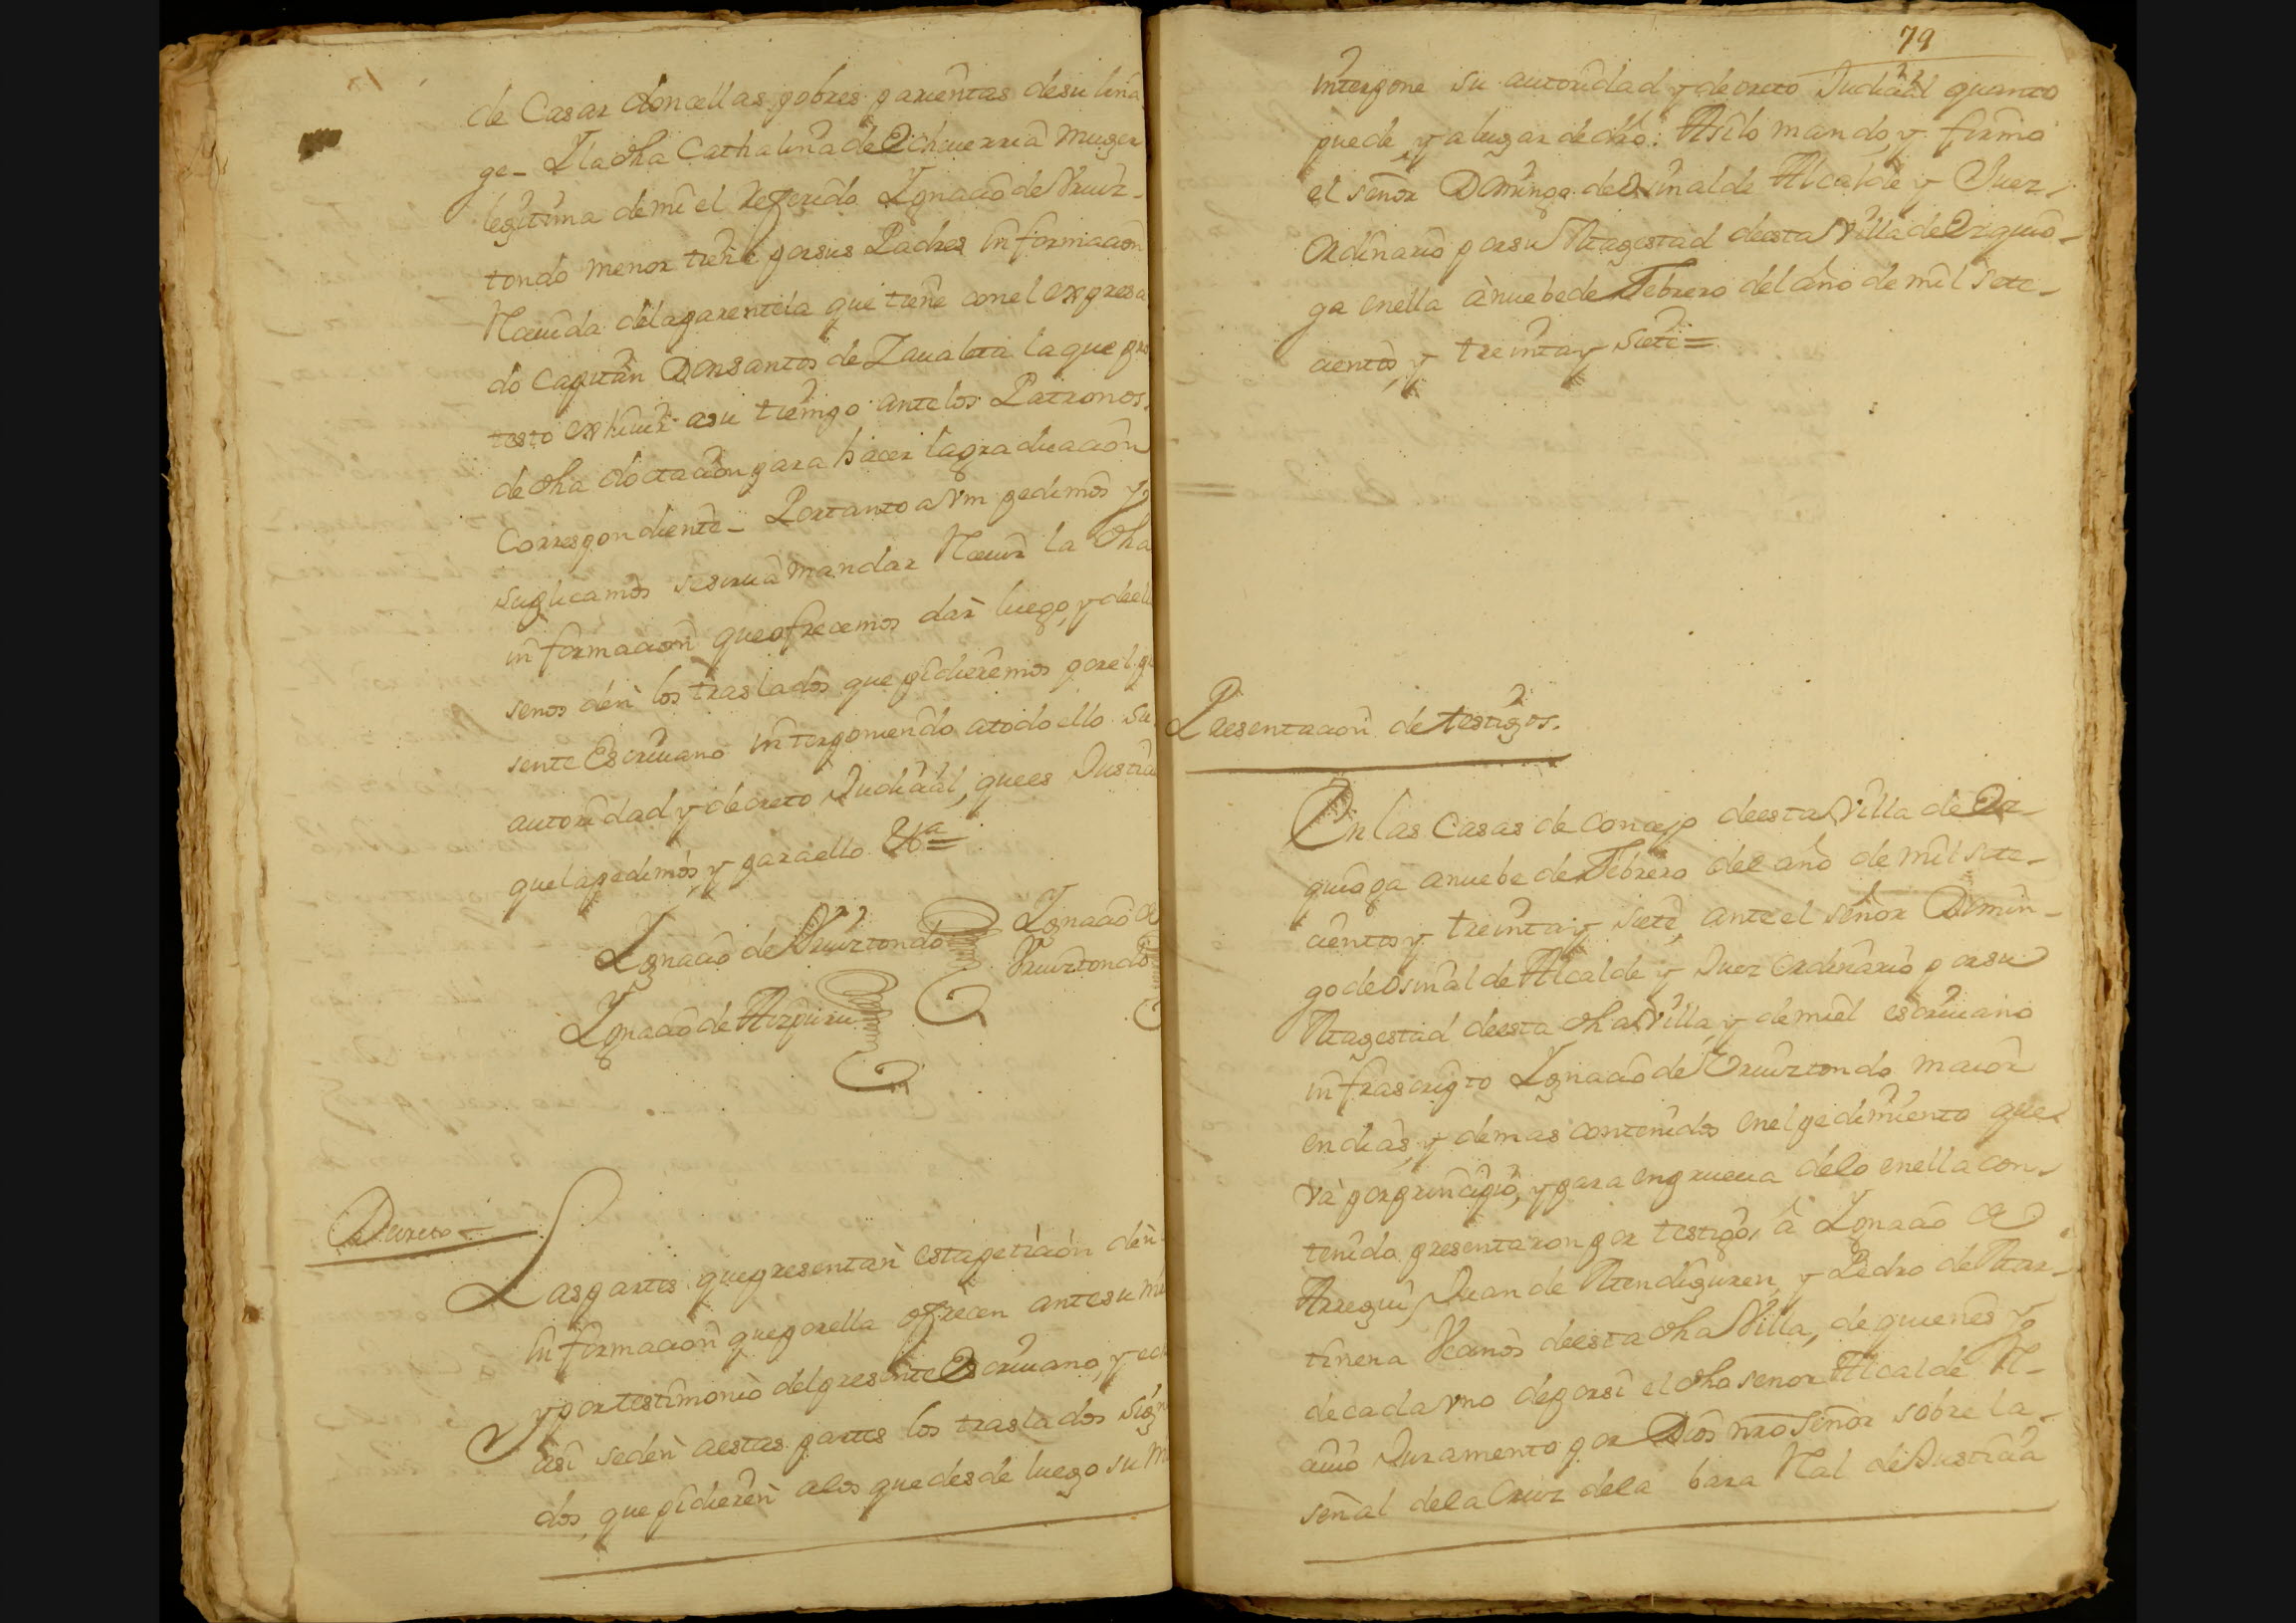 de Casar doncellas pobres parientas desu lina
ge - Y la dha Cathalina de Echeverria Muger
legitima demi el referido Ygnacio de Vruiz-
tondo menor tiene porsus Padres informacion
Recivida delaparentela que tiene conel expresa
do Capitan Don Santos de Zavaleta laque pro
testo exhivir asu tiempo antelos Patronos
de dha dotacion para hacer lagraduacion
Correspondiente - Portanto a Vm pedimos y
suplicamos seserva mandar Recivir la dha
informacion queofrecemos dar luego, y deella
senos den los traslados que pidieremos porel pre
sente Escrivano interponiendo atodo ello su
autoridad y decreto Judicial, quees Justicia
quelapedimos, y paraello &a =
Ygnacio de Vruiztondo
Ygnacio de
Vruiztondo
Ygnacio de Aizpuru
Decreto -
Las partes quepresentan estapeticion den
informacion queporella ofrecen antesu mrd
y por testimonio delpresente Escrivano, y
asi seden aestas partes los traslados signa
dos, que pidieren alos quedesde luego su mrd
79
interpone su autoridad y decreto Judicial quanto
puede, y a lugar de dro: Asilo mando, y firmo
el señor Domingo de Osinalde Alcalde y Juez
Ordinario porsu Magestad deesta Villa de Ezquio-
ga enella à nuebe de Febrero del año de mil sete-
cientos, y treinta y siete =
Presentacion de testigos.
En las Casas de Concejo deesta Villa de Ez-
quioga anuebe de Febrero del año de mil sete-
cientos y treinta y siete, ante el señor Domin-
go de Osinalde Alcalde y Juez Ordinario porsu
Magestad deesta dha Villa, y demiel escrivano
infrascripto Ygnacio de Vruiztondo maior
endias, y demas contenidos enel pedimiento que
và porprincipio, y para enprueva delo enella con-
tenido presentaron por testigos, à Ygnacio de
Arregui, Juan de Mendiguren, y Pedro de Mar-
tinena Vecinos deesta dha Villa, de quienes y
decada vno deporsi el dho senor Alcalde Re-
civio Juramento por Dios nro Señor sobre la
señal dela Cruz dela bara Real de Justicia